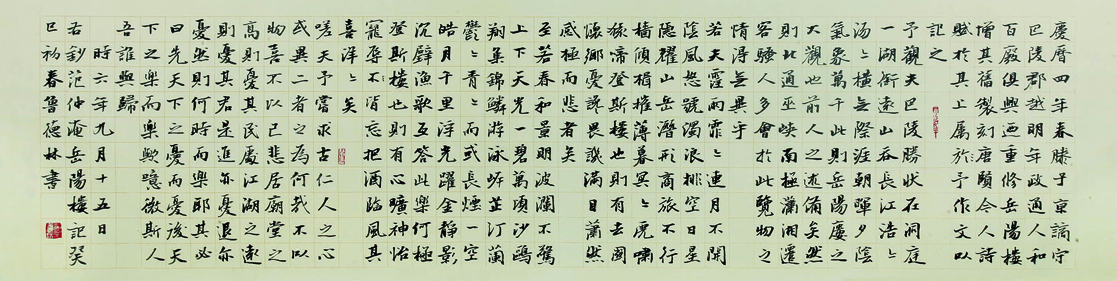 慶曆四年春滕子京謫守
巴陵郡越明年政通人和
百廢俱興迺重修岳陽樓
增其舊製刻唐賢今人詩
賦於其上属於予作文以
記之
予觀夫巴陵勝状在洞庭
一湖銜遠山吞長江浩〻
湯〻横無際涯朝暉夕陰
氣象萬千此則岳陽樓之
大觀也前人之述備矣然
則北通巫峡南極瀟湘遷
客騷人多會於此覽物之
情得無異乎
若夫霪雨霏〻連月不開
陰風怒號濁浪排空日星
隱耀山岳潛形商旅不行
檣傾楫摧薄暮冥〻虎嘯
猿啼登斯樓也則有去國
懷鄉憂讒畏譏滿目蕭然
感極而悲者矣
至若春和景明波瀾不驚
上下天光一碧萬頃沙鷗
翔集錦鱗游泳岸芷汀蘭
鬱〻青〻而或長煙一空
皓月千里浮光躍金静影
沉璧漁歌互答此樂何極
登斯樓也則有心曠神怡
寵辱不皆忘把酒臨風其
喜洋〻矣
嗟夫予嘗求古仁人之心
或異二者之為何哉不以
物喜不以己悲居廟堂之
高則憂其民處江湖之遠
則憂其君是進亦憂退亦
憂然則何時而樂耶其必
曰先天下之憂而憂後天
下之樂而樂歟噫微斯人
吾誰與歸
時六年九月十五日
右錄范仲淹岳陽樓記癸
巳初春魯德林書